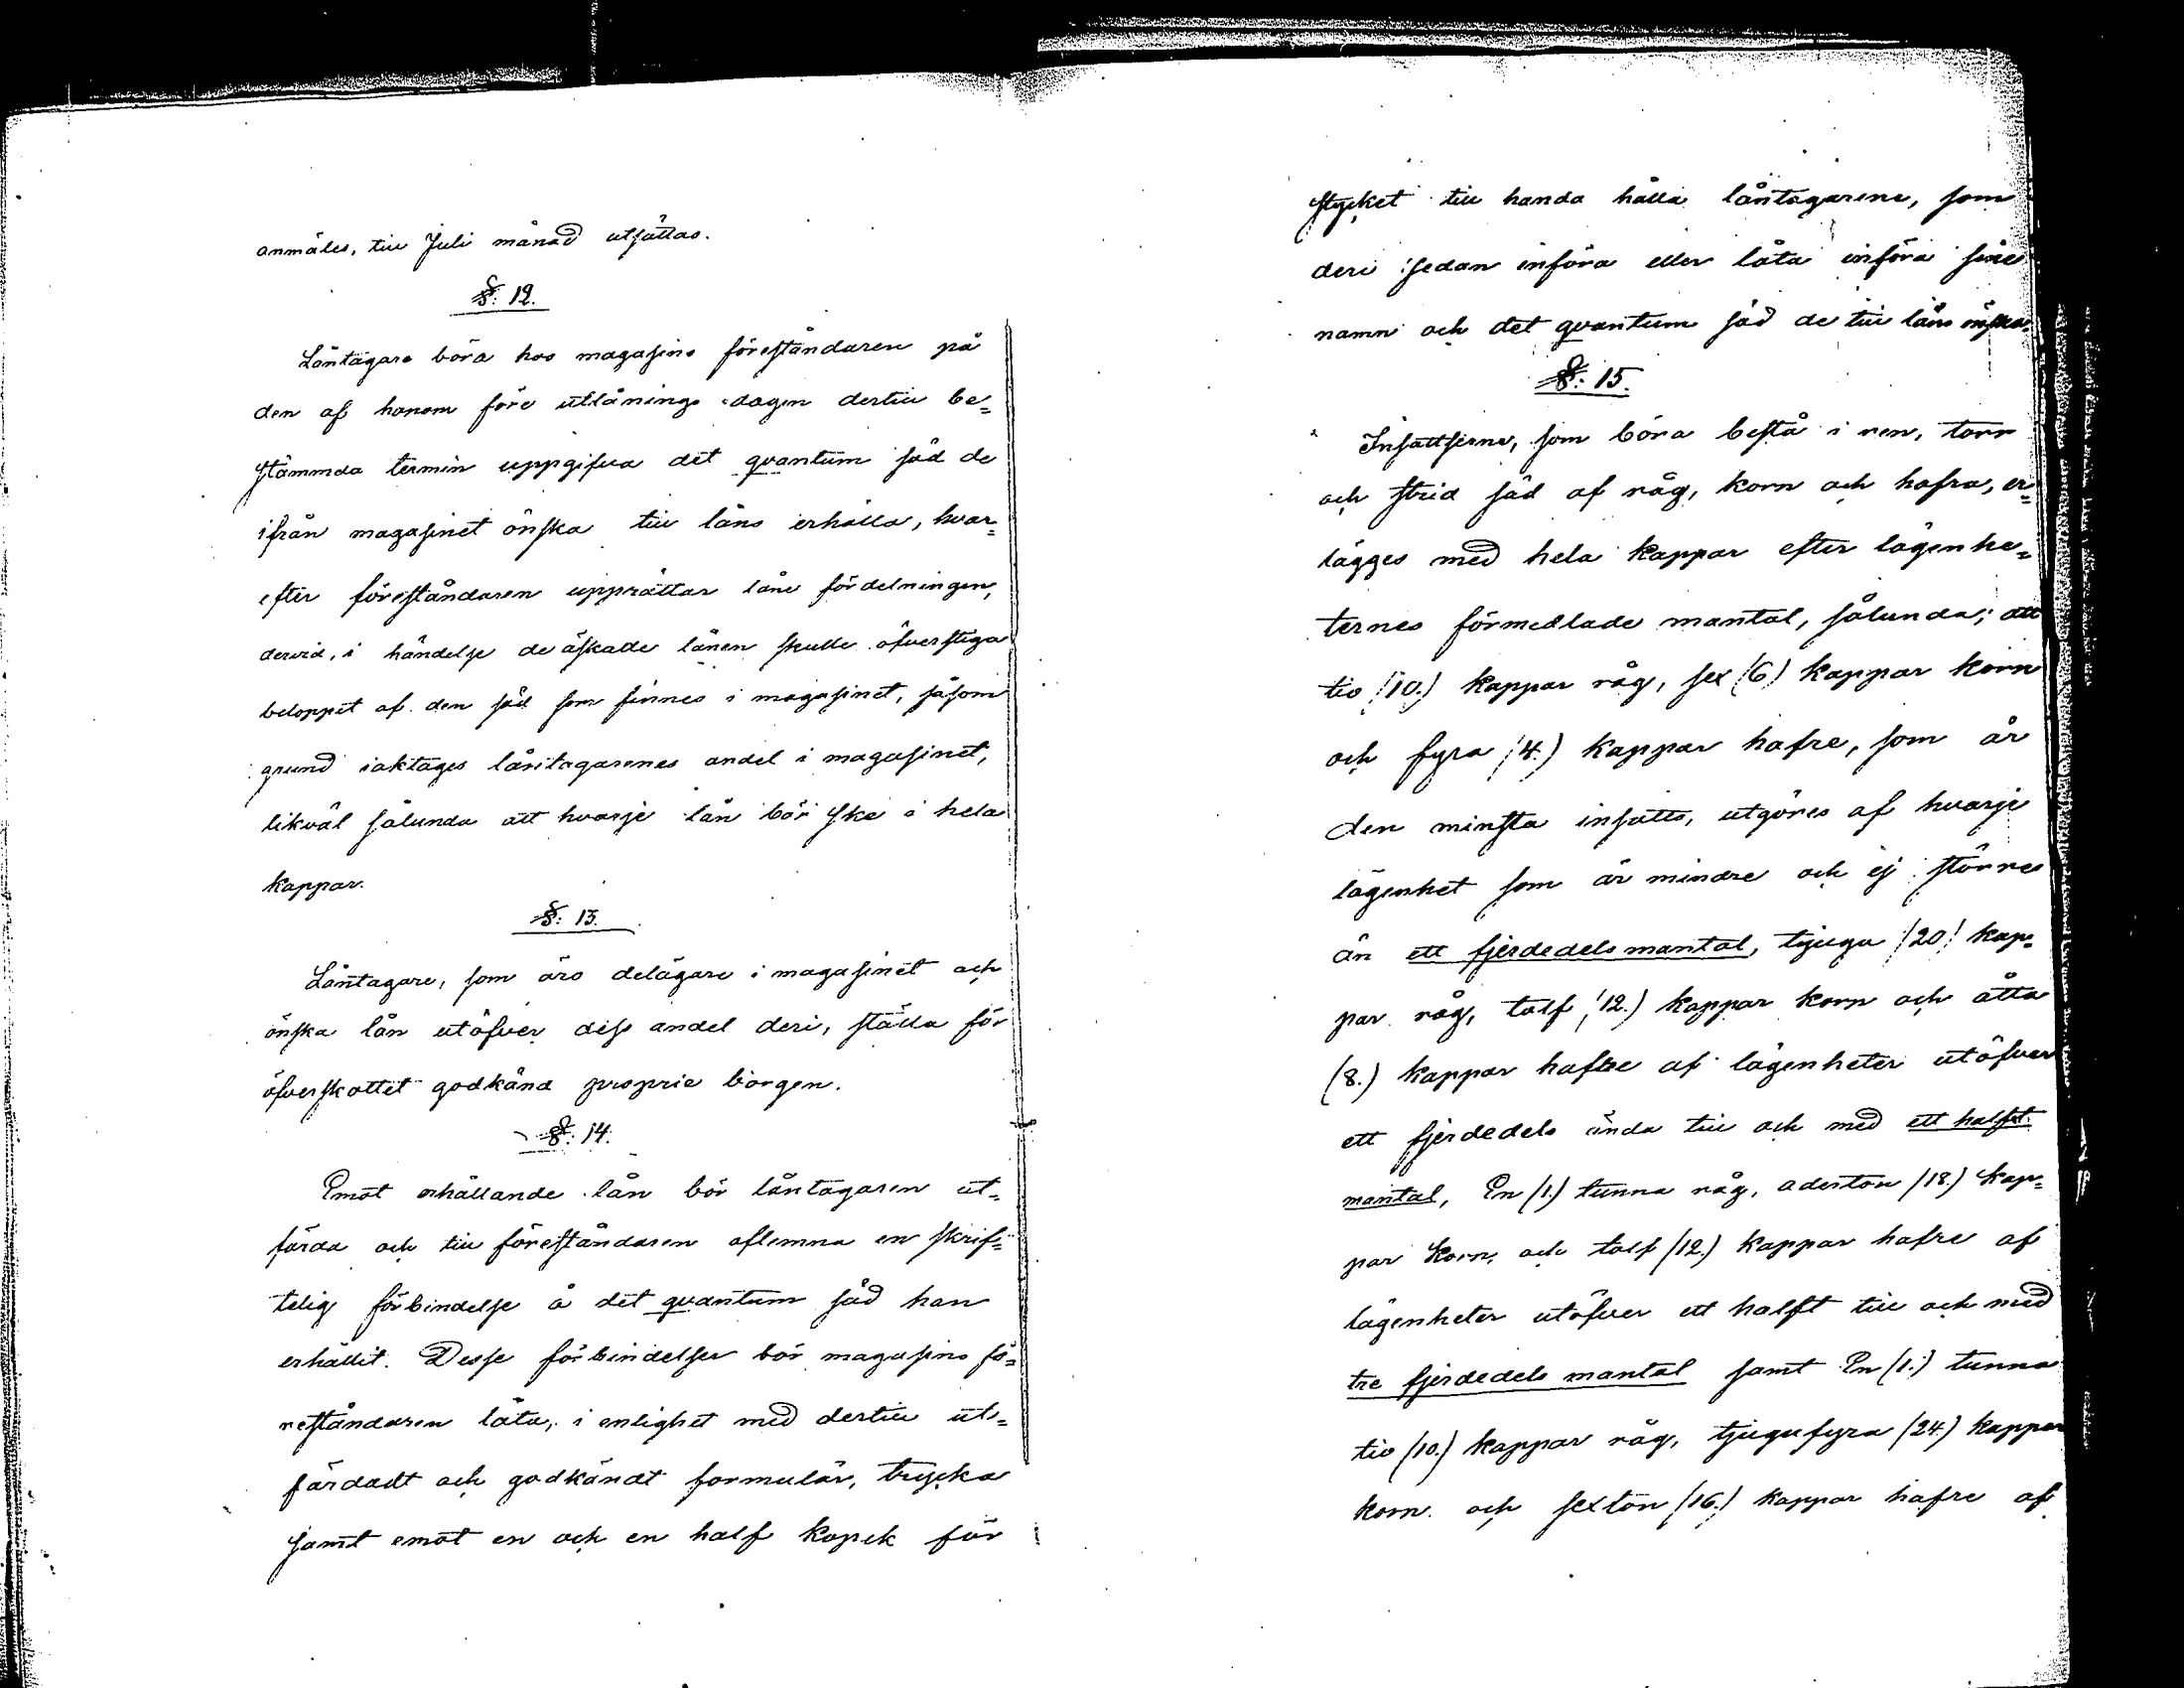 anmäles, till Juli månad utsättas.
§: 12.
Låntagare böra hos magasins föreståndaren på
den af honom före utlånings-dagen dertill be=
stämmda termin uppgifva det qvantum säd de
ifrån magasinet önska till låns erhålla, hvar=
efter föreståndaren upprättar låne fördelningen,
dervid, i händelse de äskade lånen skulle öfverstiga
beloppet af den säd som finnes i magasinet, såsom
grund iakttages låntagarenes andel i magasinet,
likväl sålunda att hvarje lån bör ske i hela
kappar.
§: 13.
Låntagare, som äro delägare i magasinet och
önska lån utöfver dess andel deri, ställa för
öfverskottet godkänd proprie borgen.
§: 14.
Emot erhållande lån bör låntagaren ut=
färda och till föreståndaren aflemna en skrif=
telig förbindelse å det qvantum säd han
erhållit. Desse förbindelser bör magasins fö=
reståndaren låta, i enlighet med dertill ut=
färdadt och godkändt formulär, trycka
samt emot en och en half kopek för
stycket till handa hålla låntagarene, som
deri sedan införa eller låta införa sine
namn och det qvantum säd de till låns önska.
§: 15.
Insattserne, som böra bestå i ren, torr
och strid säd af råg, korn och hafra, er=
lägges med hela kappar efter lägenhe=
ternes förmedlade mantal, sålunda; att
tio (10.) kappar råg, sex (6) kappar korn
och fyra (4.) kappar hafre, som är
den minsta insatts, utgöres af hvarje
lägenhet som är mindre och ej större
än ett fjerdedels mantal, tjugu (20) kap=
par råg, tolf (12.) kappar korn och åtta
(8.) kappar hafre af lägenheter utöfver
ett fjerdedels ända till och med ett halft
mantal, En (1.) tunna råg, aderton (18.) kap=
par korn, och tolf (12.) kappar hafre af
lägenheter utöfver ett halft till och med
tre fjerdedels mantal samt En (1.) tunna
tio (10.) kappar råg, tjugufyra (24.) kappar
korn och sexton (16.) kappar hafre af